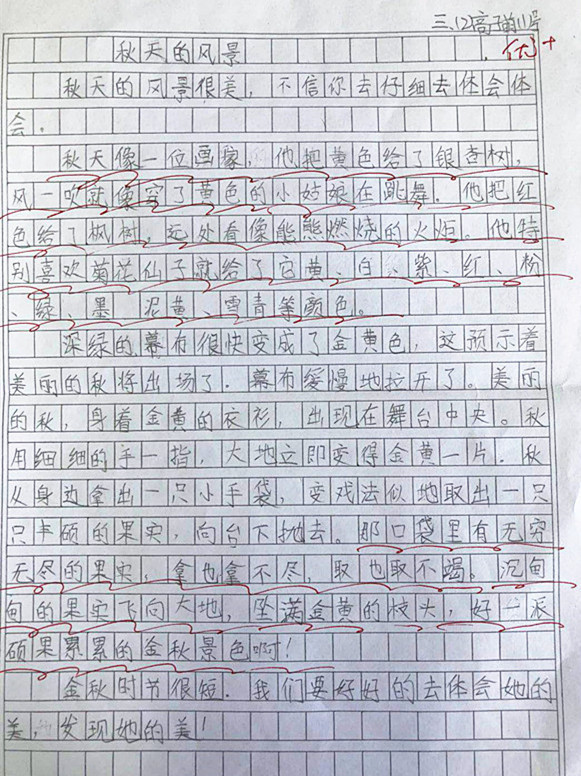 三.12高子前11号
秋天的风景
优+
秋天的风景很美,不信你去仔细去体会体
会.
秋天像一位画家,他把黄色给了银杏树,
风一吹就像穿了黄色的小姑娘在跳舞.他把红
色给了枫树,远处看像熊熊燃烧的火炬.他特
别喜欢菊花仙子就给了它黄、白、紫、红、粉
、绿、墨 泥黄、雪青等颜色。
深绿的幕布很快变成了金黄色,这预示着
美丽的秋将出场了.幕布缓慢地拉开了。美丽
的秋,身着金黄的衣衫,出现在舞台中央。秋
用细细的手一指,大地立即变得金黄一片.秋
从身边拿出一只小手袋,变戏法似地取出一只
只丰硕的果实,向台下抛去。那口袋里有无穷
无尽的果实,拿也拿不尽,取也取不竭。沉甸
甸的果实飞向大地,坠满金黄的枝头,好一派
硕果累累的金秋景色啊!
金秋时节很短.我们要好好的去体会她的
美,发现她的美!